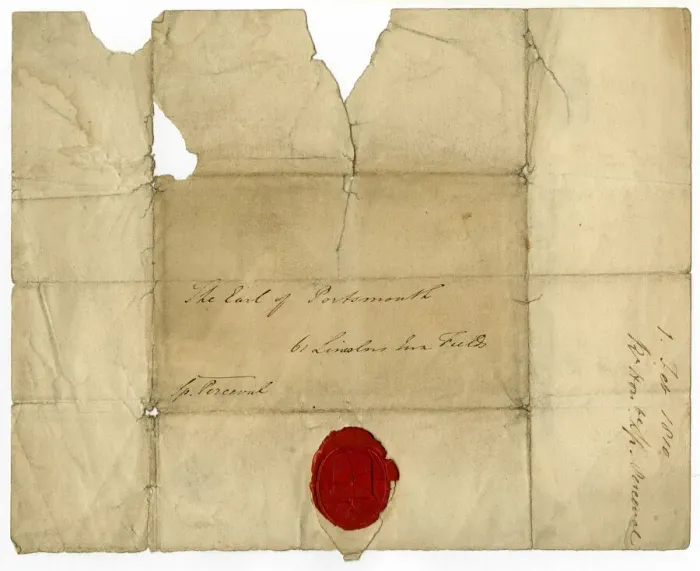 The Earl of Portsmouth
61 Lincolns Inn Fields
Sp. Perceval
1. Feb 1810
Rt Honble Sp. Perceval